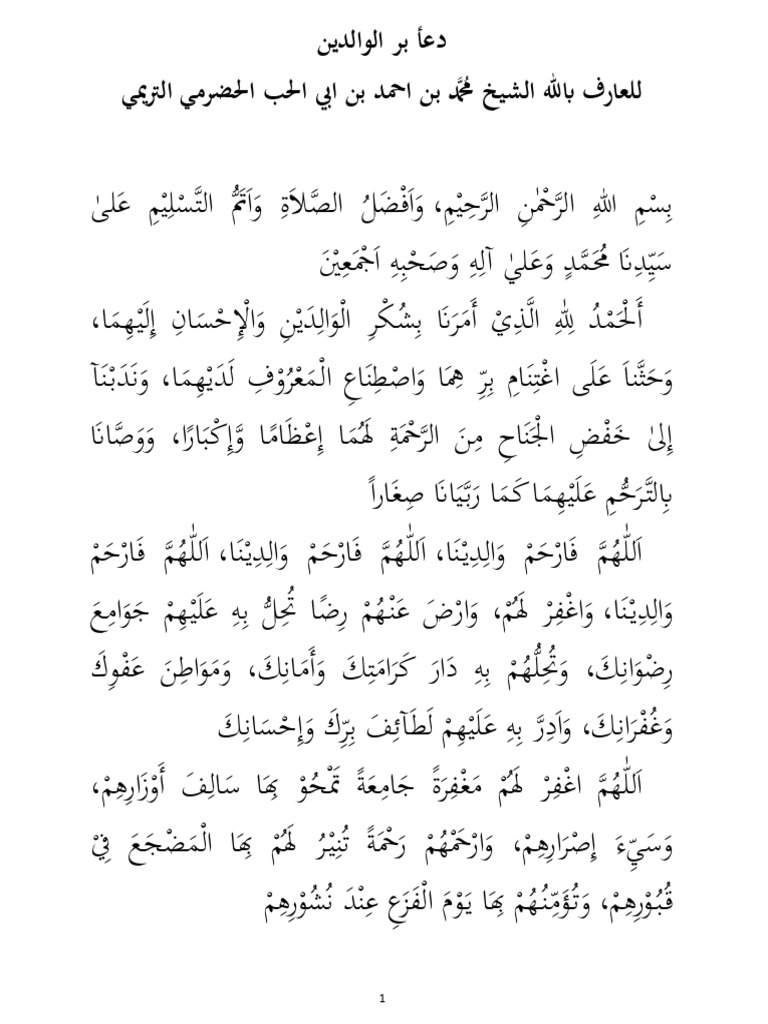 دعأ بر الوالدين
للعارف بالله الشيخ مُحَمَّد بن احمد بن ابي الحب الحضرمي التريمي
بِسْمِ اللهِ الرَّحْمٰنِ الرَّحِيْمِ، وَاَفْضَلُ الصَّلاَةِ وَاَتَمُّ التَّسْلِيْمِ عَلىٰ
سَيِّدِنَا مُحَمَّدٍ وَعَليٰ آلِهِ وَصَحْبِهِ اَجْمَعِيْنَ
أَلْحَمْدُ لِلهِ الَّذِيْ أَمَرَنَا بِشُكْرِ الْوَالِدَيْنِ وَالْإِحْسَانِ إِلَيْهِمَا،
وَحَثَّناَ عَلَى اغْتِنَامِ بِرِّ هِمَا وَاصْطِنَاعِ الْمَعْرُوْفِ لَدَيْهِمَا، وَنَدَبْنَآ
إِلىٰ خَفْضِ الْجَنَاحِ مِنَ الرَّحْمَةِ لَهُمَا إِعْظَامًا وَّإِكْبَارًا، وَوَصَّانَا
بِالتَّرَحُّمِ عَلَيْهِمَا كَمَا رَبَّيَانَا صِغَاراً
اَللّٰهُمَّ فَارْحَمْ وَالِدِيْنَا، اَللّٰهُمَّ فَارْحَمْ وَالِدِيْنَا، اَللّٰهُمَّ فَارْحَمْ
وَالِدِيْنَا، وَاغْفِرْ لَهُمْ، وَارْضَ عَنْهُمْ رِضًا تُحِلُّ بِهِ عَلَيْهِمْ جَوَامِعَ
رِضْوَانِكَ، وَتُحِلُّهُمْ بِهِ دَارَ كَرَامَتِكَ وَأَمَانِكَ، وَمَوَاطِنَ عَفْوِكَ
وَغُفْرَانِكَ، وَاَدِرَّ بِهِ عَلَيْهِمْ لَطَآئِفَ بِرِّكَ وَإِحْسَانِكَ
اَللّٰهُمَّ اغْفِرْ لَهُمْ مَغْفِرَةً جَامِعَةً تَمْحُوْ بِهَا سَالِفَ أَوْزَارِهِمْ،
وَسَيِّءَ إِصْرَارِهِمْ، وَارْحَمْهُمْ رَحْمَةً تُنِيْرُ لَهُمْ بِهَا الْمَضْجَعَ فِيْ
قُبُوْرِهِمْ، وَتُؤَمِّنُهُمْ بِهَا يَوْمَ الْفَزَعِ عِنْدَ نُشُوْرِهِمْ
1